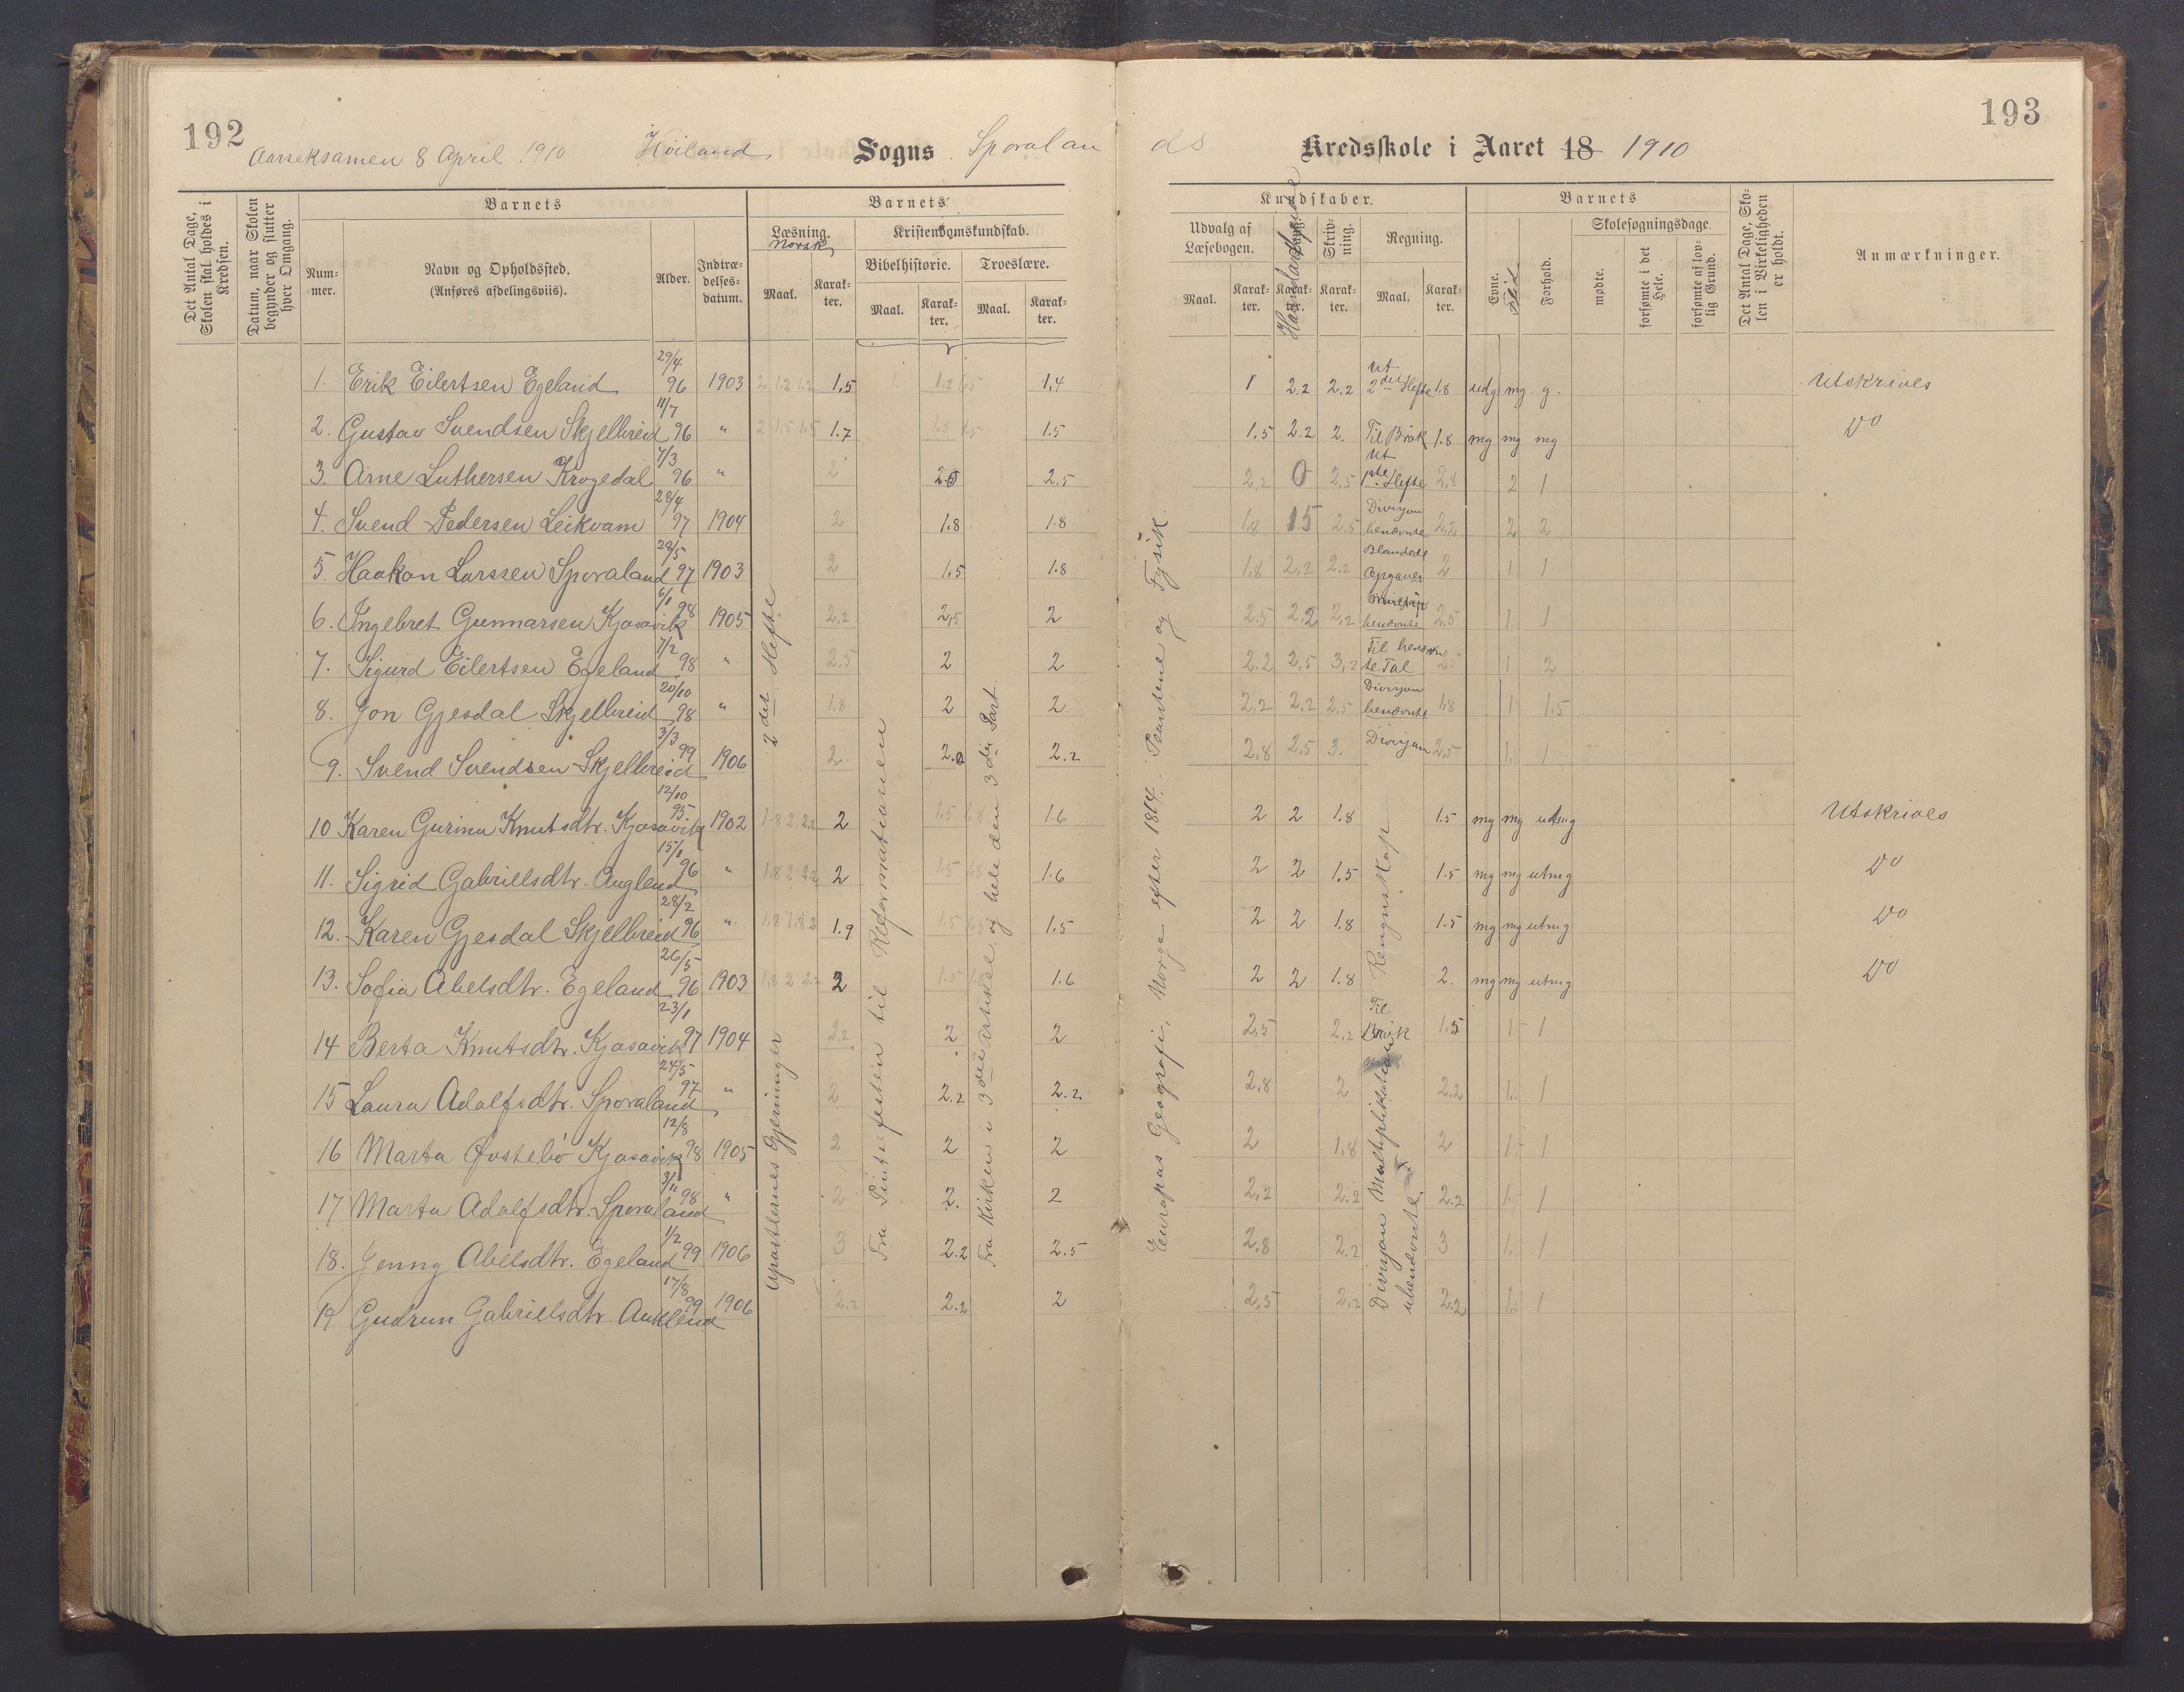 192
193
Aarseksamen 8 April 1910 Höiland Sogns Sporalan
ds Kredsskole i Aaret 18 1910
Det Antal Dage, Skolen skal holdes i Kredsen.
Datum, naar Skolen begynder og slutter hver Omgang.
Barnets
Num-mer.
Navn og Opholdssted.
(Anføres afdelingsviis).
Alder.
Indtræ-delses-datum.
Barnets
Læsning.
Norsk
Maal.
Karak-ter.
Kristendomskundskab.
Bibelhistorie.
Troeslære.
Maal.
Karak-ter.
Maal.
Karak-ter.
Kundskaber.
Udvalg af Læsebogen.
Maal.
Karak-ter.
Sang.
Karak-ter.
Haandarbeide
Skriv-ning.
Karak-ter.
Regning.
Maal.
Karak-ter.
Barnets
Evne.
Flid
Forhold.
Skolesøgningsdage.
mødte.
forsømte i det Hele.
forsømte af lov-lig Grund.
Det Antal Dage, Sko-len i Virkeligheden er holdt.
Anmærkninger.
1. Erik Eilertsen Egeland 29/4 96 1903 2 1.2 1.2 1,5 1 1.2 1.5 1,4 1 2.2 2.2 Ut 2det Hefte 1.8 udg mg g. Utskrives
2. Gustav Svendsen Skjelbreid 11/7 96 " 2 1.5 1.5 1.7 1.5 1.5 1.5 1.5 2.2 2. Til Brøk 1.8 mg mg mg Do
3. Arne Luthersen Krogedal 7/3 96 " 2 2.5 2.5 2,2 0 2,5 Ut 1ste Hefte 2,8 2 1
4. Svend Pedersen Leikvam 28/4 97 1904 2 1.8 1.8 1.8 1.5 2.5 Divisjon benævnte 2.2 2 2
5. Haakon Larssen Sporaland 28/5 97 1903 2 1.5 1.8 1.8 2,2 2.2 Blandede Opgaver 2 1 1
6. Ingebret Gunnarsen Kjosavik 6/1 98 1905 2,2 2,5 2 2.5 2,2 2,2 benævnte 2,5 1 1
7. Sigurd Eilertsen Egeland 7/2 98 " 2.5 2 2 2.2 2,5 3,2 Til benævn te Tal 2.5 1 2
8. Jon Gjesdal Skjelbreid 20/10 98 " 1.8 2 2 2,2 2,2 2.5 Divisjon benævnte 1.8 1 1.5
9. Svend Svendsen Skjelbreid 3/3 99 1906 2. 2.2 2.2 2,8 2,5 3. Divisjon 2,5 1.5 1
10 Karen Gurina Knutsdtr. Kjosavik 12/10 95 1902 1.8 2 2,2 2 1.5 1.8 1.6 2 2 1.8 1.5 mg mg utmg Utskrives
11. Sigrid Gabrielsdtr. Auglend 15/1 96 " 1.8 2 2,2 2 1.5 1.8 1.6 2 2 1.5 1.5 mg mg utmg Do
12. Karen Gjesdal Skjelbreid 28/2 96 " 1.8 1.8 2 1.9 1.5 1.5 1.5 2 2 1.8 1.5 mg mg utmg Do
13. Sofia Abelsdtr. Egeland 26/5 96 1903 1.8 2 2.2 2 1.5 1.8 1.6 2 2 1.8 2. mg mg utmg Do
14 Berta Knutsdtr. Kjosavik 23/1 97 1904 2,2 2 2 2,5 2,2 Til Brøk 1.5 1.5 1
15 Laura Adolfsdtr. Sporaland 24/5 97 " 2 2.2 2.2 2,8 2 2.2 1.5 1
16 Marta Øvstebö Kjosavik 12/8 98 1905 2 2 2 2 1.8 2 1.5 1
17 Marta Adolfsdtr. Sporaland 3/11 98 " 2 2. 2 2,2 2.2 2.2 1.5 1
18. Jenny Abelsdtr. Egeland 1/2 99 1906 3 2.2 2.5 2,8 2.2 3 1.5 1
19 Gudrun Gabrielsdtr. Auklend 17/8 99 1906 2.2 2.2 2 2,5 2,2 2.2 1.5 1
2det Hefte
Apostlernes Gjerninger
Fra Pintsefesten til Reformationen
Fra Kirken i 3die Artikel, og hele den 3die Part.
Europas Geografi, Norge efter 1814. Planterne og Fysik.
Regnskap
Divisjon Multiplikation
ubenævnte.